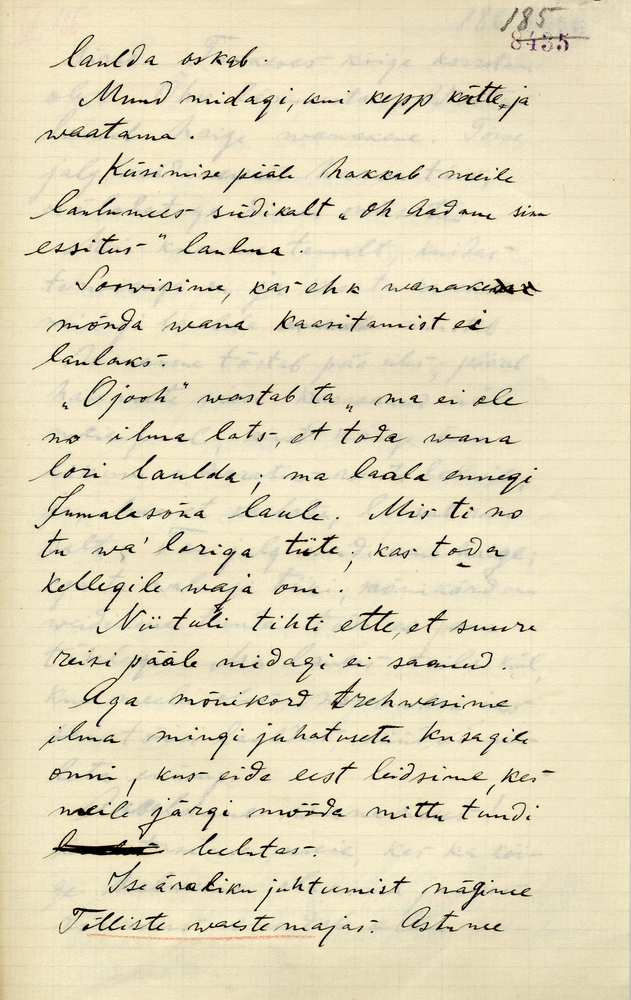 185
8435
laulda oskab.
Muud midagi, kui kepp kätte ja
waatama.
Küsimise pääle hakkab meile
laulumees südikalt „oh Aadam sinu
essitus" laulma.
Soowisime, kas ehk wanake
mõnda wana kaasitamist ei
laulaks.
„Ojooh" wastab ta „ma ei ole
no ilma lats, et toda wana
lori laulda; ma laala ennegi
Jumalasõna laule. Mis ti no
tu wa' loriga tüte; kas toda
kellegile waja om.
Nii tuli tihti ette, et suure
reisi pääle midagi ei saanud.
Aga mõnikord trehwasime
ilma mingi juhatuseta kusagile
onni, kus eide eest leidsime, kes
meile järgi mööda mittu tundi
helutas.
Iseäraliku juhtumist nägime
Tõlliste waestemajas. Astume